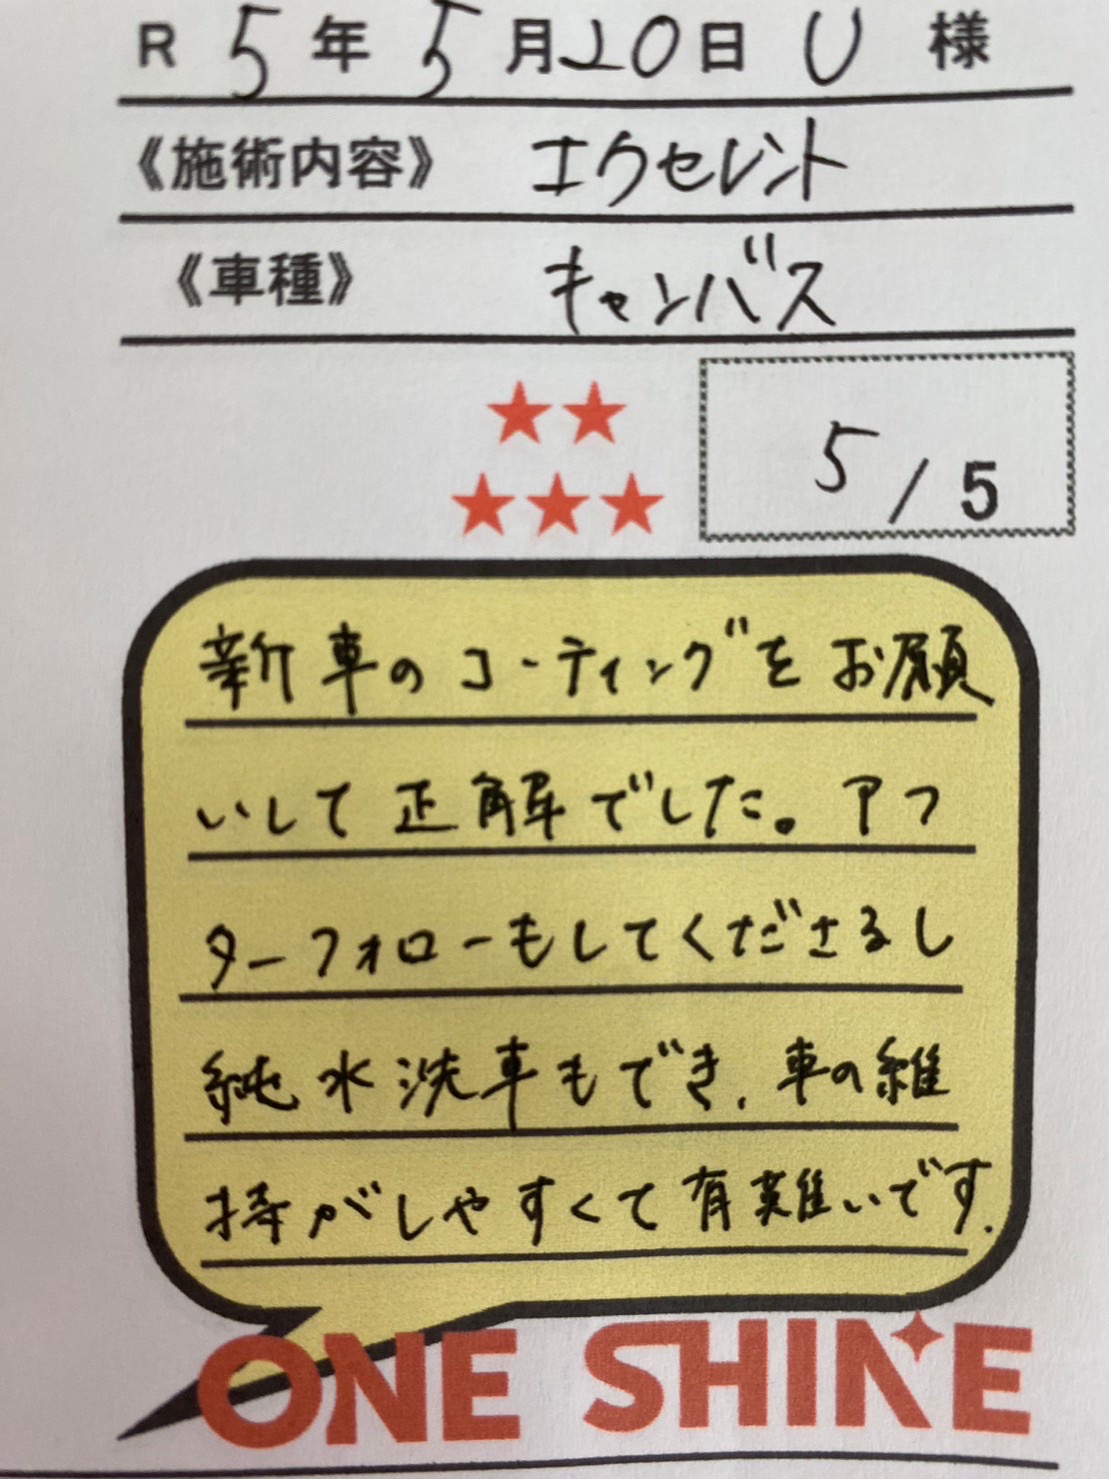 R 5年 5月20日 U 様
《施術内容》 エクセレント
《車種》 キャンバス
5/5
新車のコーティングをお願
いして正解でした。アフ
ターフォローもしてくださるし
純水洗車もでき、車の維
持がしやすくて有難いです.
ONE SHINE